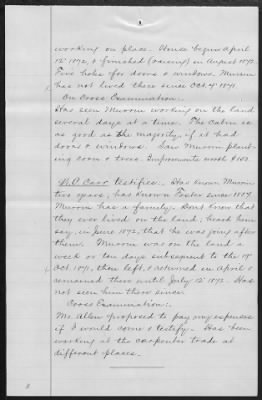 working on place. House begun April
15" 1872, & finished (raising) in August 1872.
Five holes for doors & windows. Munson
has not lived there since Oct. 4" 1871.
On Cross Examination:.
Has seen Munson working on the land
several days at a time. The cabin is
as good as the majority, if it had
doors & windows. Saw Munson plant-
ing corn & trees. Improvements worth $100.
W.C. Carr testifies:. Has known Munson
two years; has known Foster since 1854.
Munson has a family. Don't know that
they ever lived on the land; heard him
say, in June 1872, that he was going after
them. Munson was on the land a
week or ten days subsequent to the 19"
Oct. 1871, then left, & returned in April &
remained there until July 12" 1872. Has
not seen him there since.
Cross Examination:.
Mr. Allen proposed to pay my expenses
if I would come & testify. Has been
working at the carpenter trade at
different places.
8